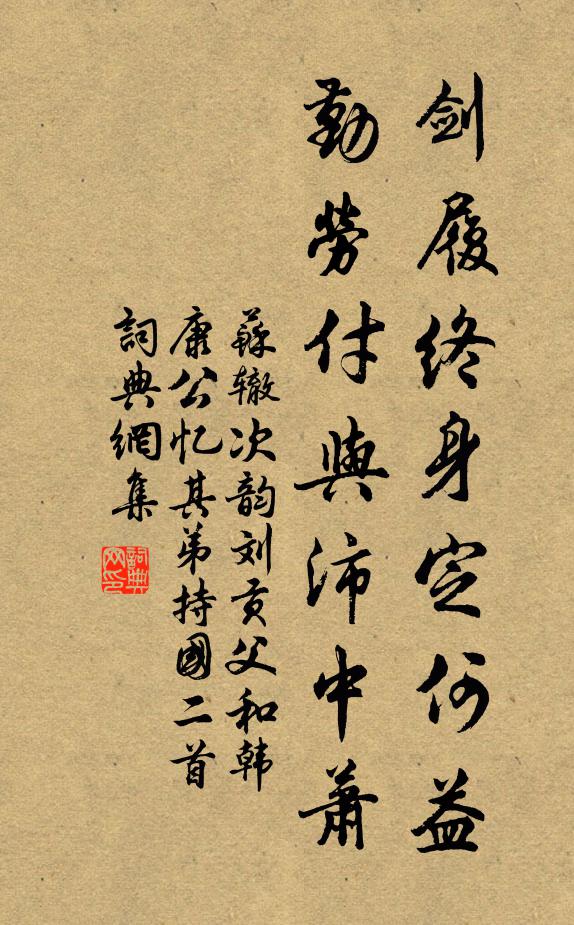 剑履终身定何益
勤劳付與沛中萧
蘇辙次韵刘贡父和韩
康公忆其弟持國二首
詞典網集
詞典
网印